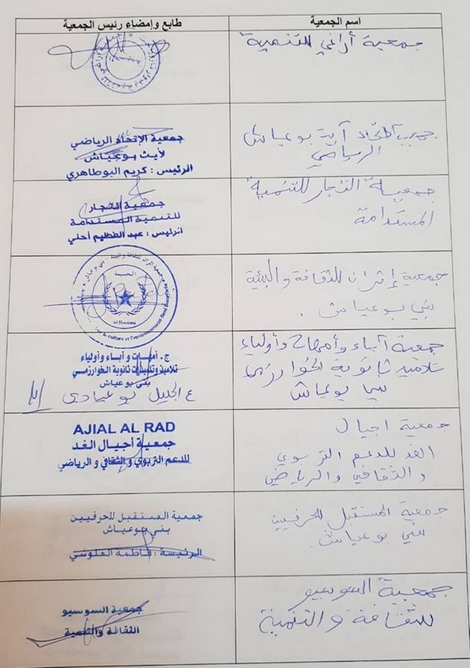 اسم الجمعية
طابع وإمضاء رئيس الجمعية
جمعية أراغي للتنمية
جمعية اتحاد آيت بوعياش
الرياضي
جمعية الإتحاد الرياضي
لأيث بوعياش
الرئيس : كريم البوطاهري
جمعية "النجار للتنمية
المستدامة
جمعية النجار
للتنمية المستدامة
الرئيس : عبد العظيم أحلي
جمعية إثران للثقافة والبيئة
بني بوعياش .
الحسيمة
Al Hoceima
جمعية آباء وأمهات وأولياء
تلاميذ ثانوية الخوارزمي
بني بوعياش
ج. أمهات و آباء وأولياء
تلاميذ وتلميذات ثانوية الخوارزمي
بني بوعياش
جمعية اجيال
الغد للدعم التربوي
والثقافي والرياضي
AJIAL AL RAD
جمعية أجيال الغد
للدعم التربوي و الثقافي و الرياضي
جمعية المستقبل للحرفيين
بني بوعياش.
جمعية المستقبل للحرفيين
بني بوعياش
الرئيسة : فاطمة العلوشي
جمعية السوسيو
للثقافة والتنمية
جمعية السوسيو
الثقافة والتنمية